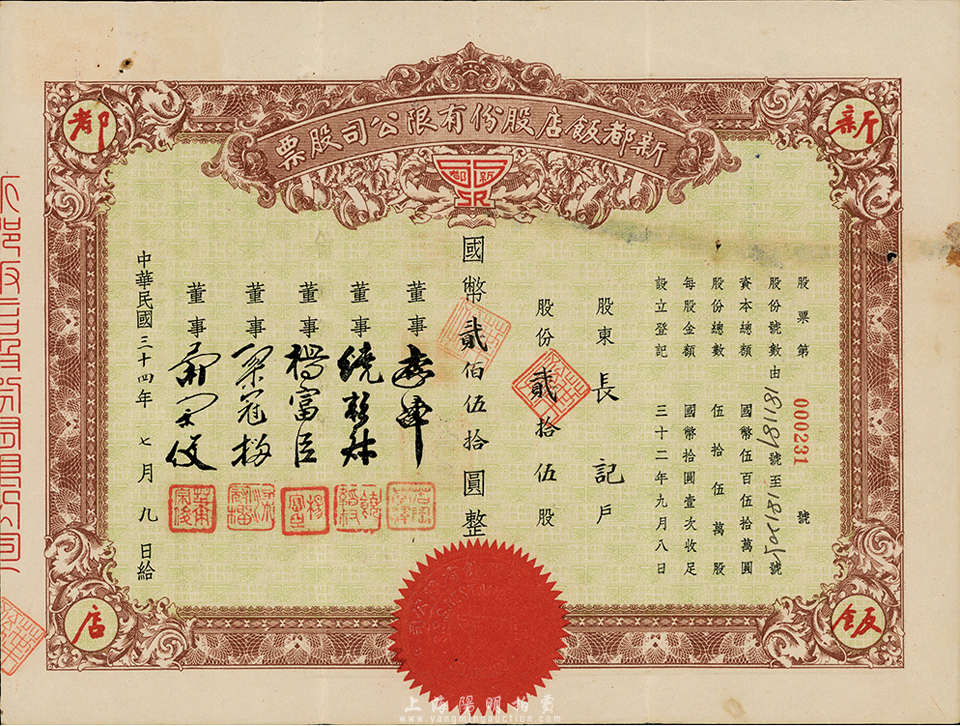 新都飯店股份有限公司股票
新
都
飯
店
新都
SR
股票第 000231 號
股份號數由181181號至181205號
資本總額 國幣伍百伍拾萬圓
股份總數 伍拾伍萬股
每股金額 國幣拾圓壹次收足
設立登記 三十二年九月八日
股東 長記 戶
股份 貳拾伍股
國幣貳佰伍拾圓整
董事
董事
董事 楊富臣
董事 梁冠榴
董事
中華民國三十四年七月九日給
上海陽明拍賣
www.yangmingauction.com